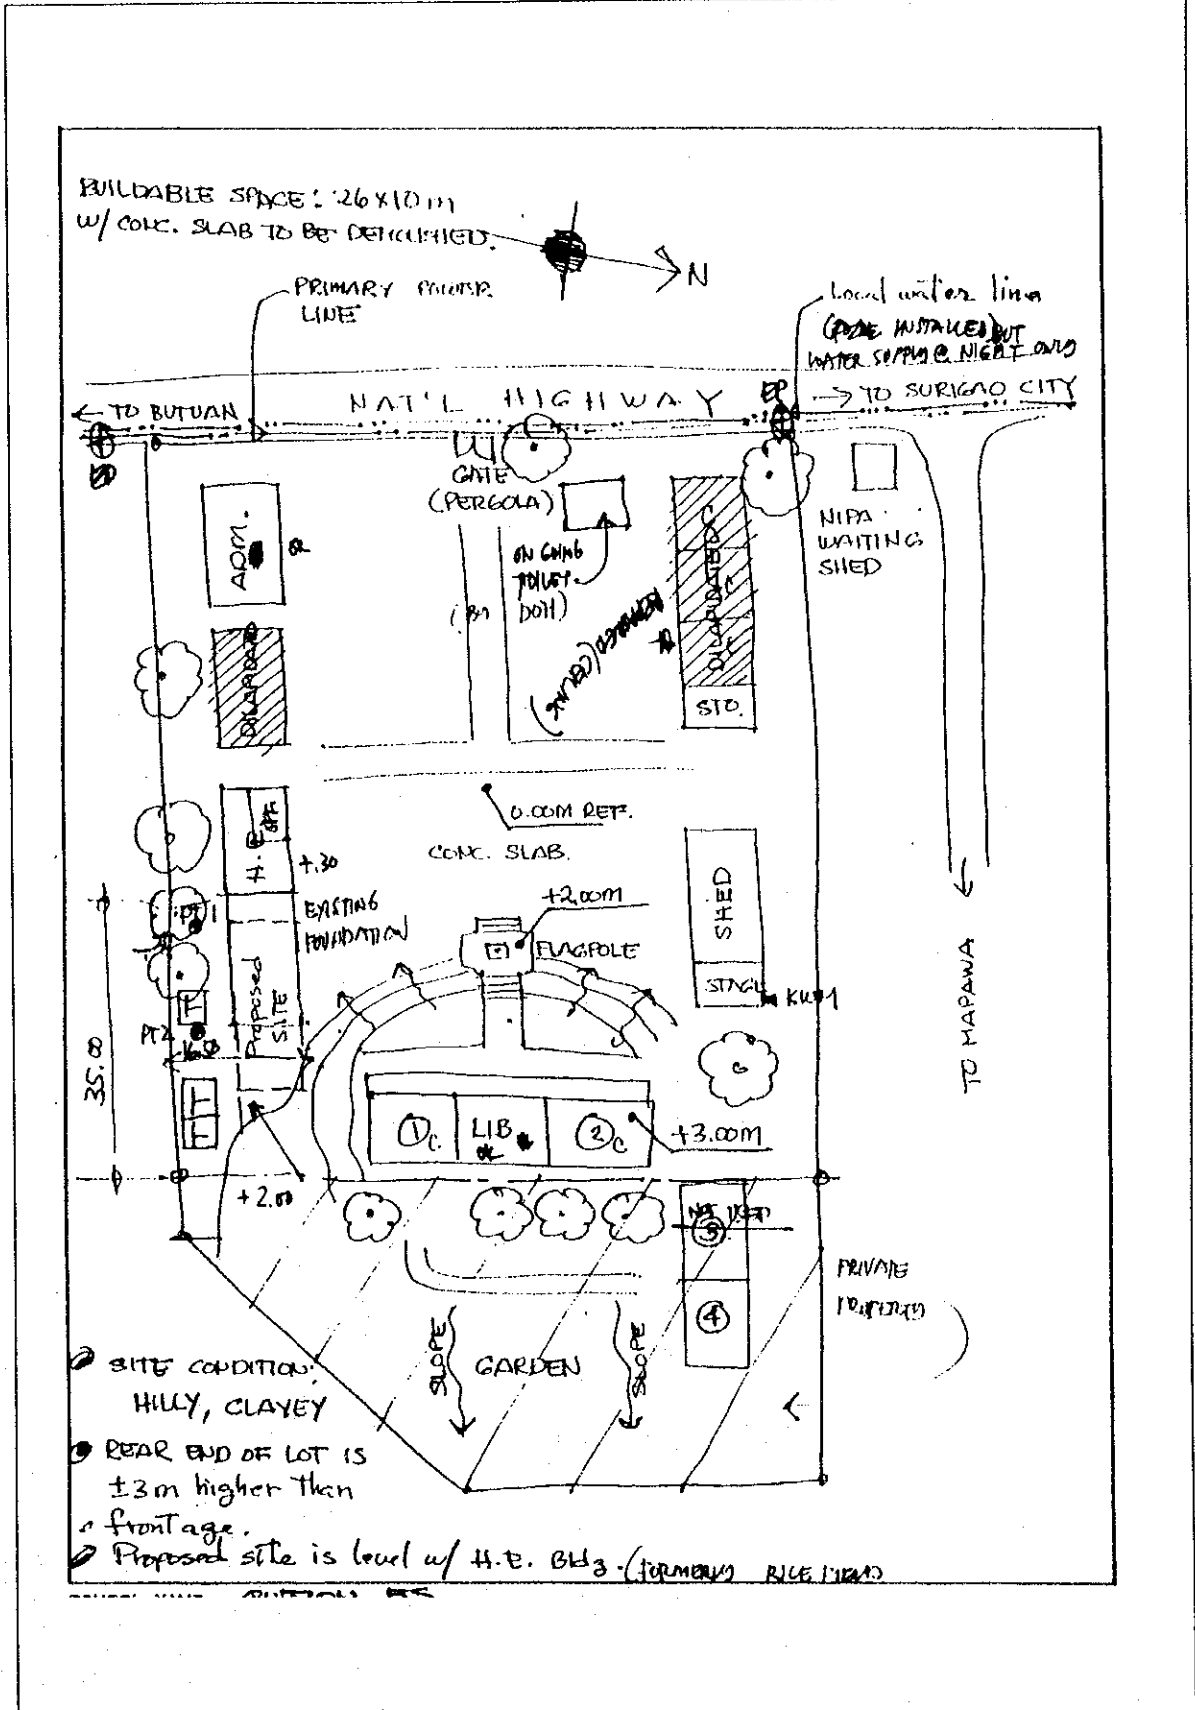 BUILDABLE SPACE: 26 X 10 m
W/ CONC. SLAB TO BE DEMOLISHED.
N
PRIMARY POWER
LINE
Local water line
INSTALLED BUT
WATER SUPPLY @ NIGHT ONLY
← TO BUTUAN
NAT'L HIGHWAY
EP
→ TO SURIGAO CITY
EP
GATE
(PERGOLA)
ADM.
OK
ON GOING
TOILET
DOH)
DILAPIDATED
NIPA
WAITING
SHED
DILAPIDATED
STO.
0.00M REF.
CONC. SLAB.
H.E
+.30
EXISTING
FOUNDATION
+2.00M
FLAGPOLE
SHED
STAGE
PT1
PT2
T
T
T
Proposed
SITE
35.00
+2.00
1
C.
LIB
OK
2
C
+3.00M
TO MAPAWA
NOT USED
3
4
PRIVATE
PROPERTY
SLOPE
GARDEN
SLOPE
SITE CONDITION:
HILLY, CLAYEY
REAR END OF LOT IS
±3m higher Than
frontage.
Proposed site is level w/ H.E. Bldg. (FORMERLY RICE FIELD)